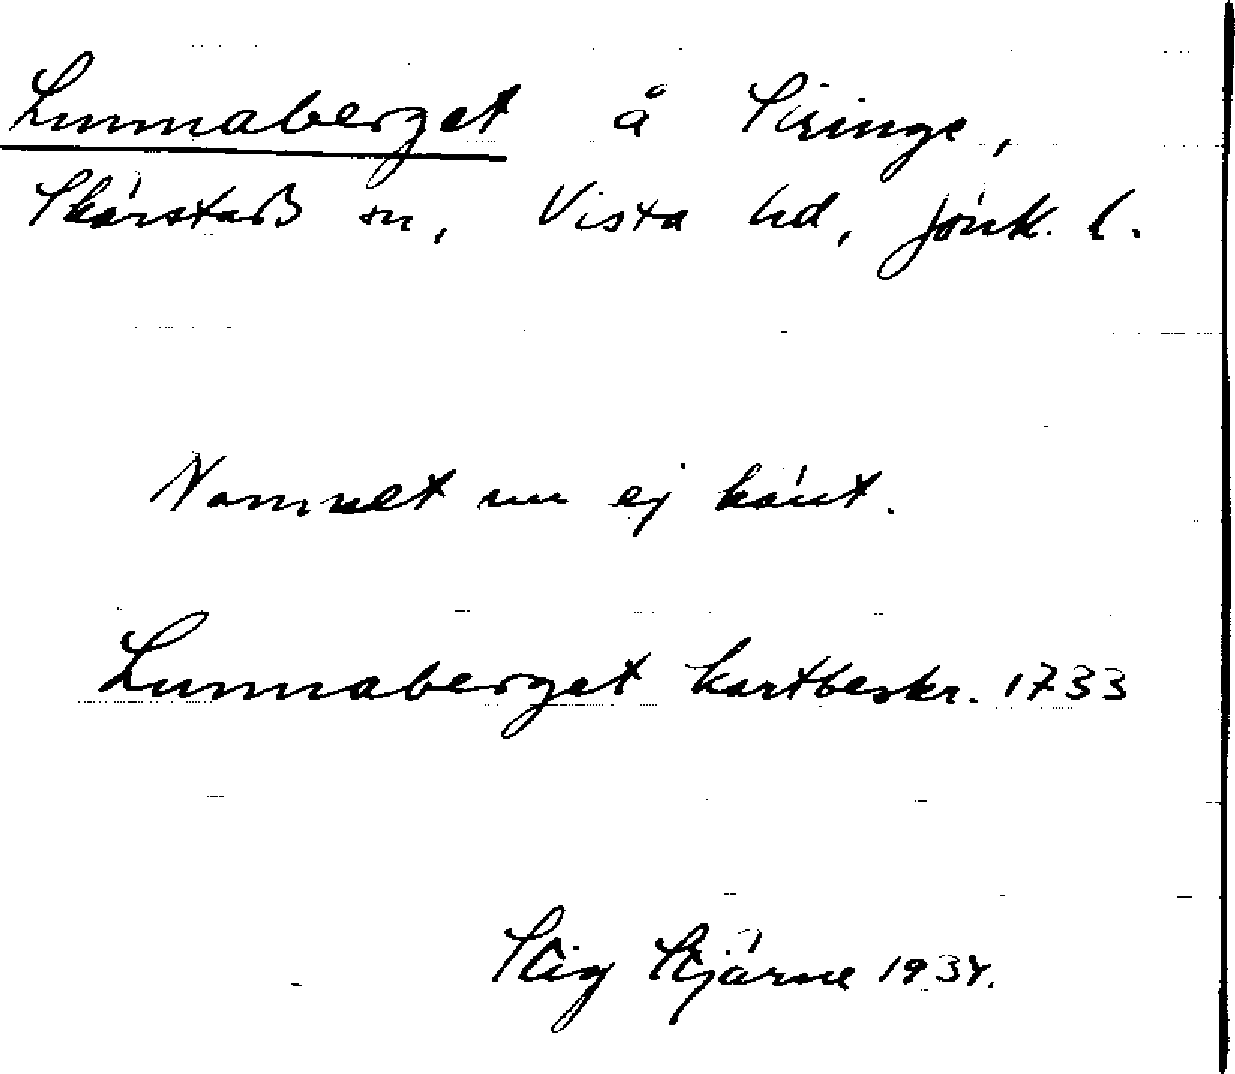 Lunnaberget å Siringe,
Skärstads sn, Vista hd, Jönk. l.
Namnet nu ej känt.
Lunnaberget kartbeskr. 1733
Stig Stjärne 1934.